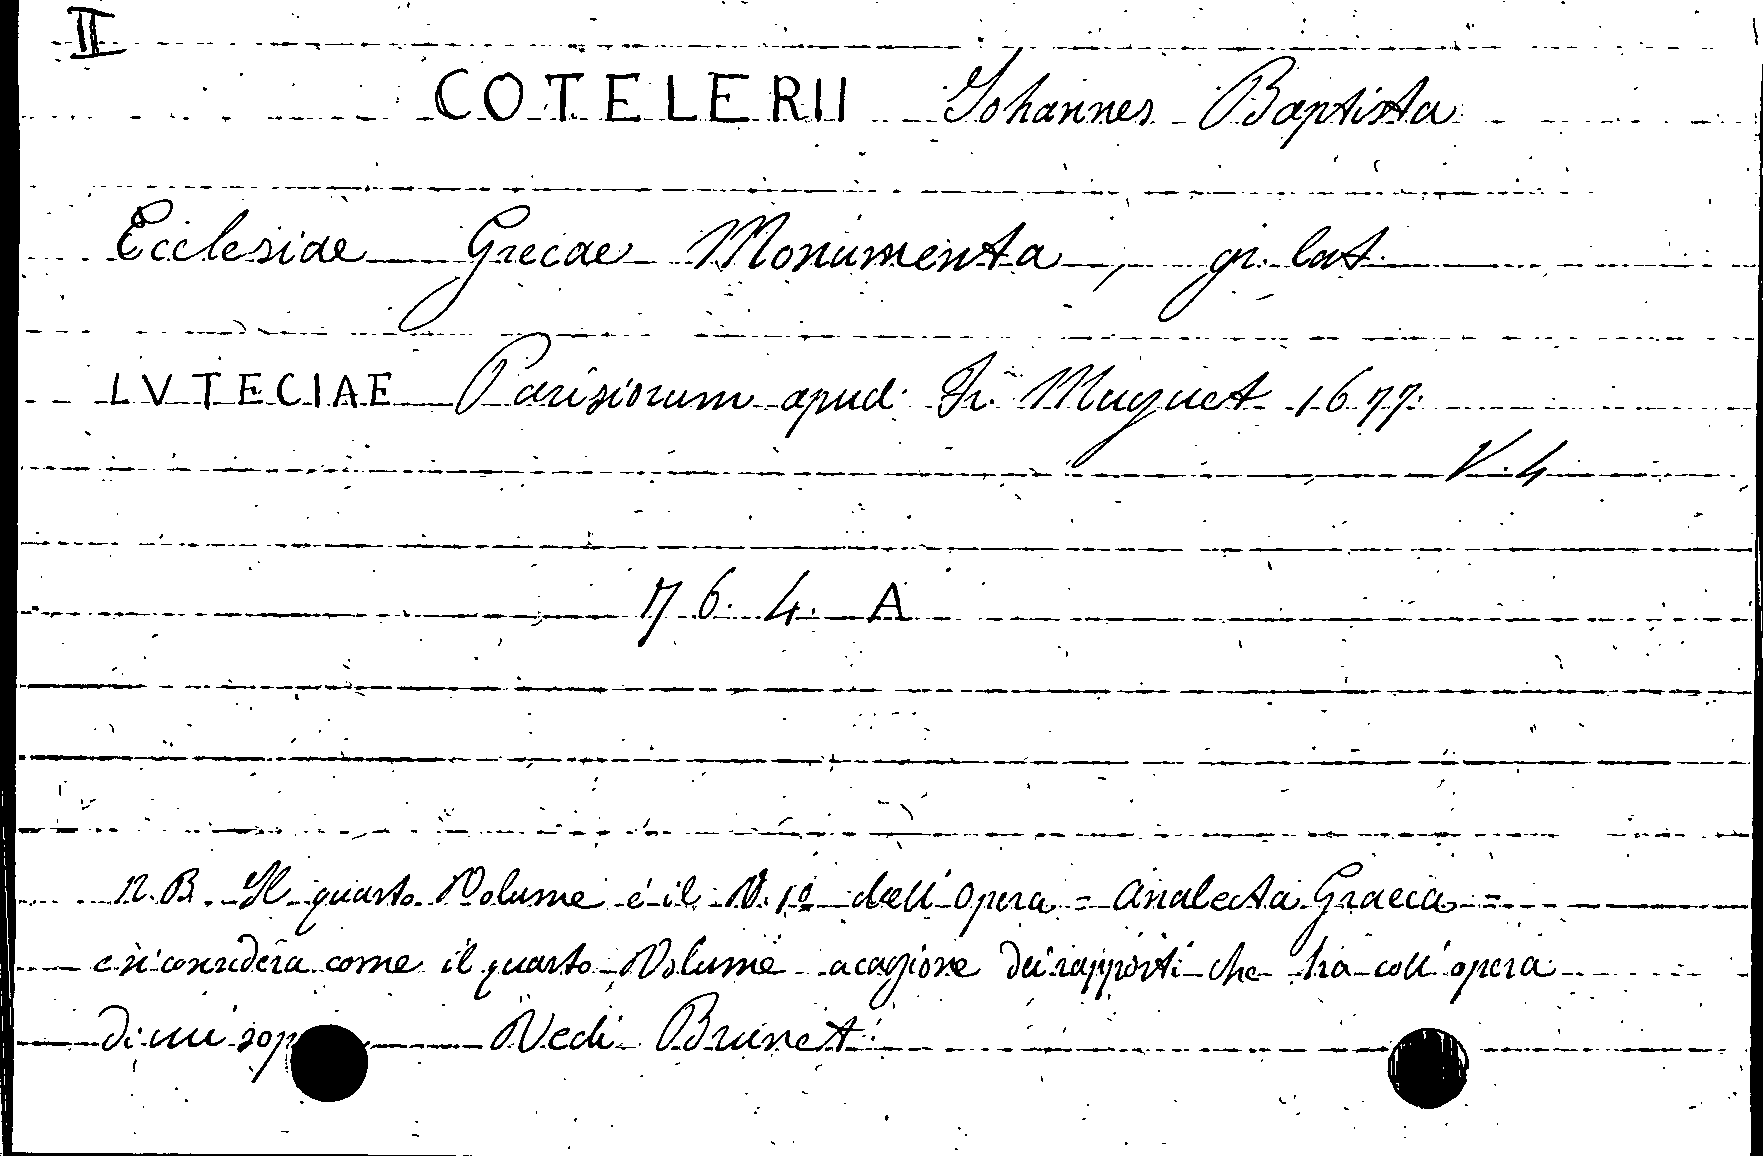 II
COTELERII Johannes Baptista
Ecclesiae Grecae Monumenta, gr. lat.
LVTECIAE Parisiorum apud Fr. Muguet 1677.
V. 4
76. 4. A
N.B. Il quarto Volume è il V. 1º dell'opera = Analecta Graeca =
e si considera come il quarto Volume a cagione dei rapporti che ha coll'opera
di cui Vedi Brunet.